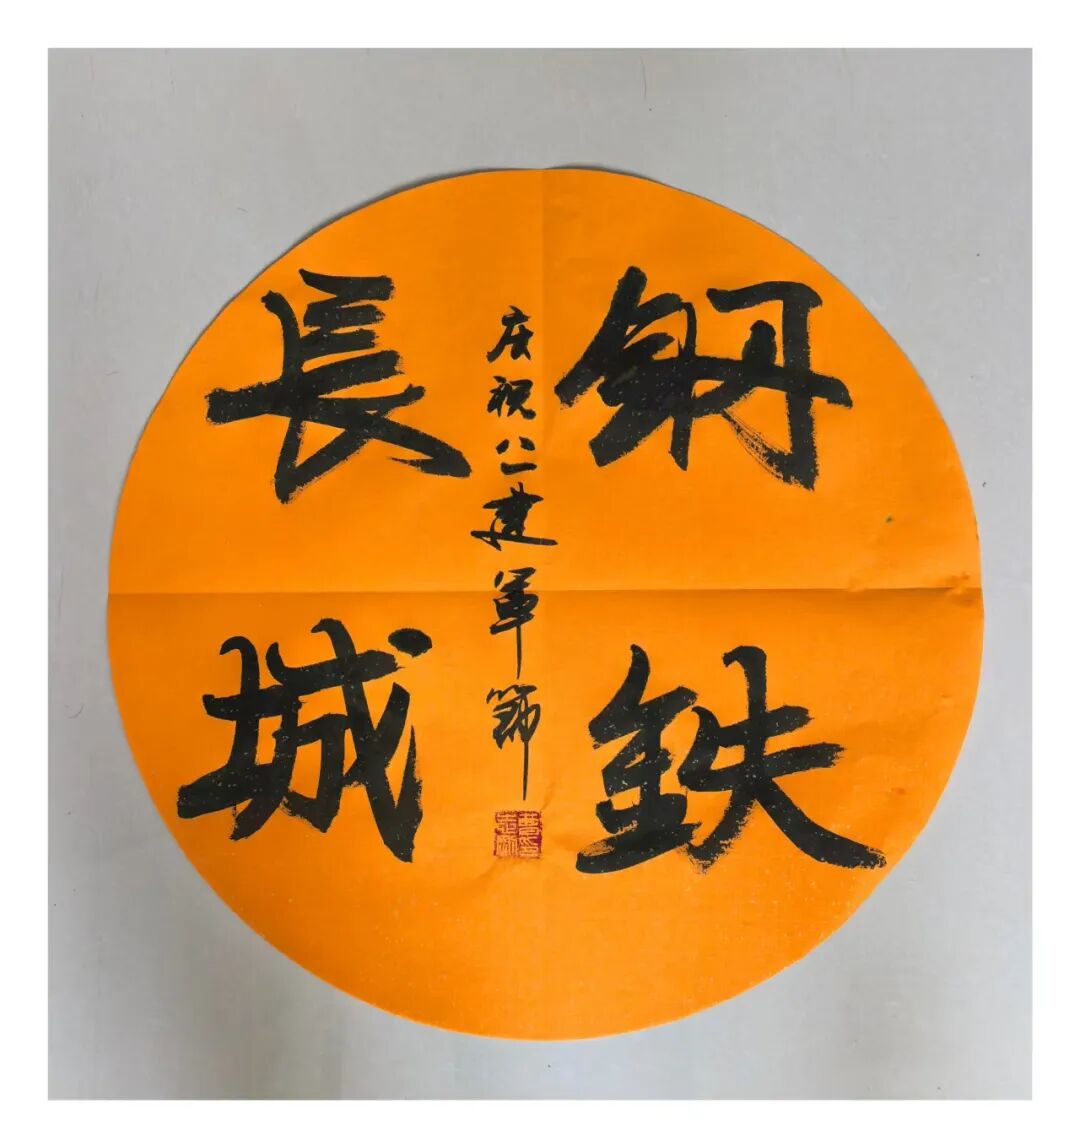 鋼鉄
長城
庆祝八一建軍節